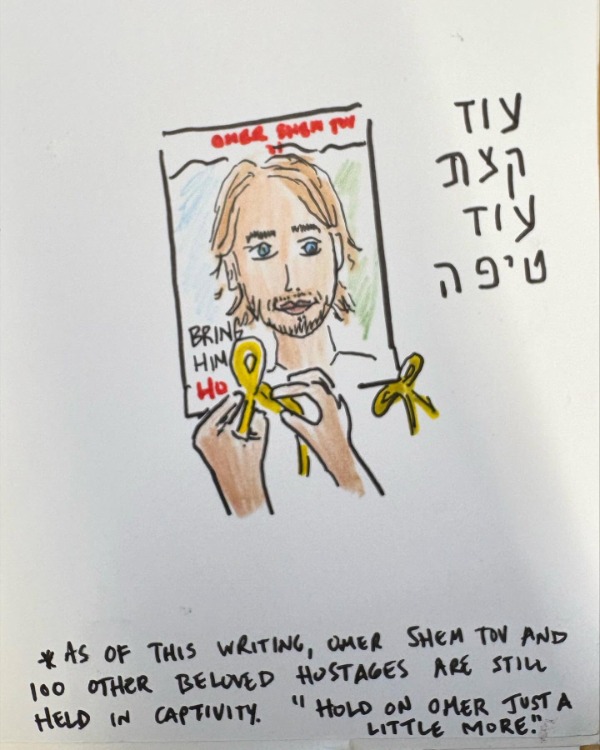 OMER SHEM TOV
BRING
HIM
HO
עוד
קצת
עוד
טיפה
* AS OF THIS WRITING, OMER SHEM TOV AND
100 OTHER BELOVED HOSTAGES ARE STILL
HELD IN CAPTIVITY. "HOLD ON OMER JUST A
LITTLE MORE."